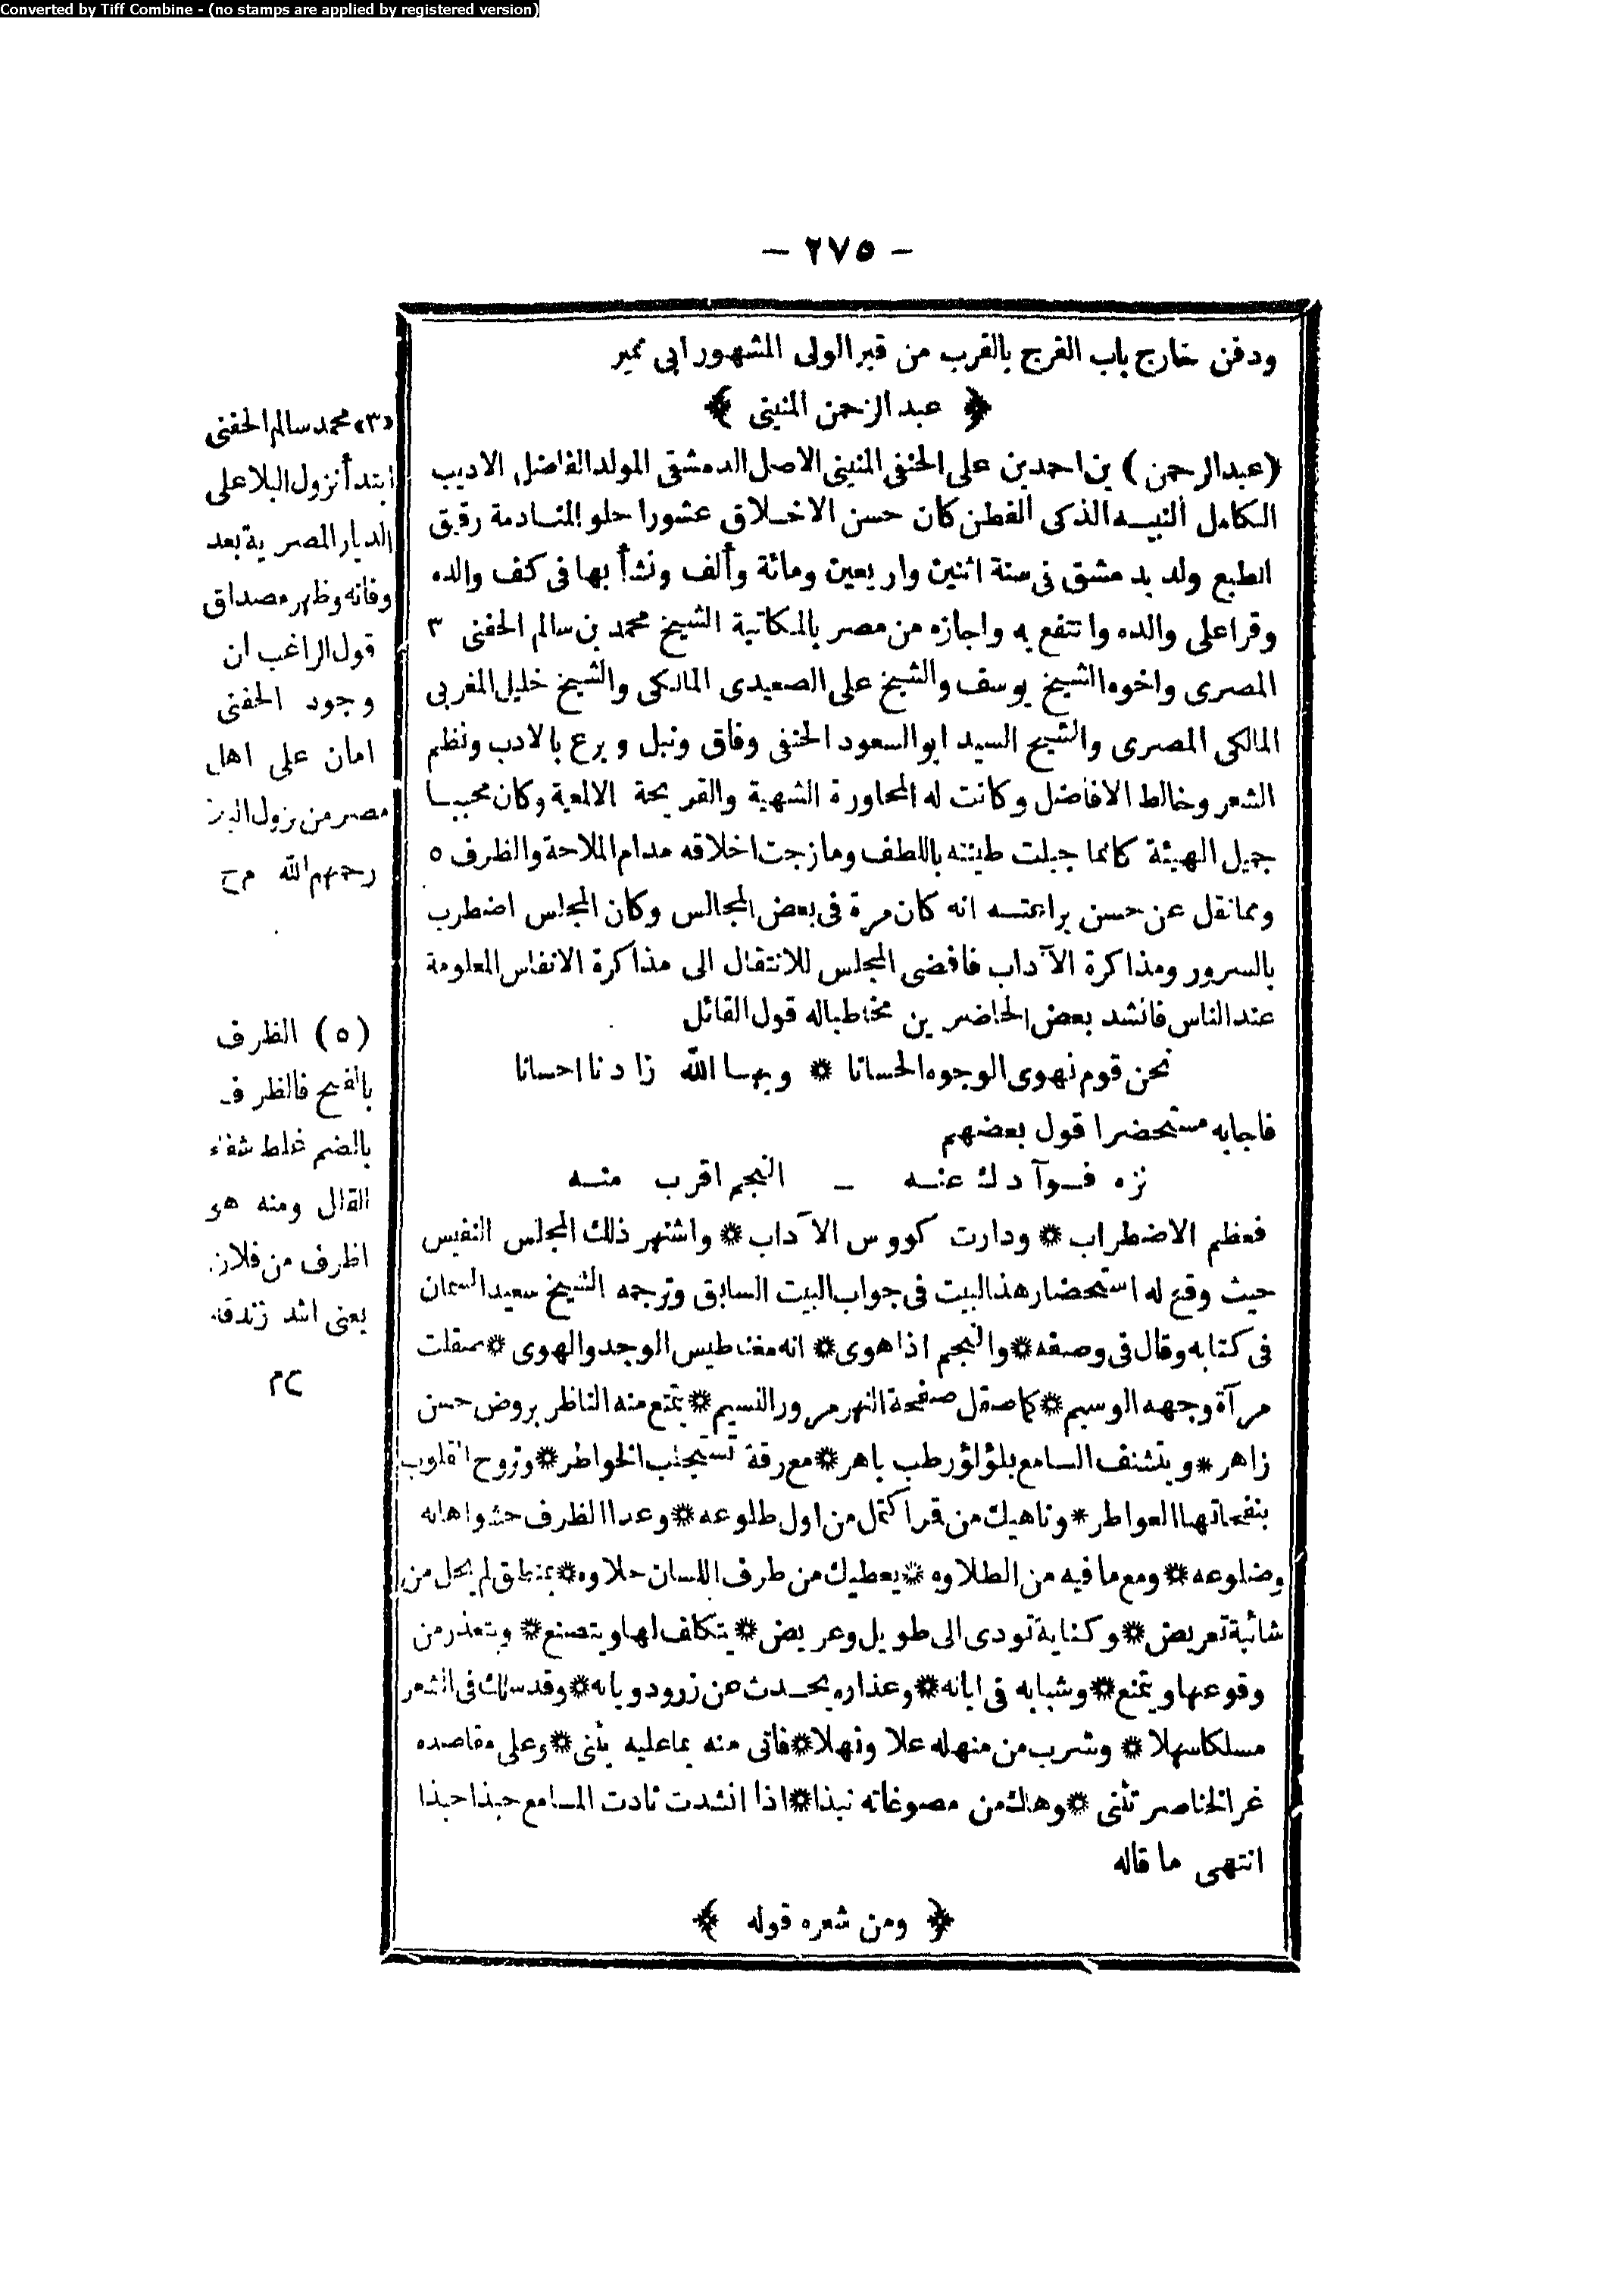 Converted by Tiff Combine - (no stamps are applied by registered version)
— ٢٧٥ —
ودفن خارج باب الفرج بالقرب من قبر الولى المشهور ابى نمير
﴿ عبد الرحمن المنينى ﴾
(عبد الرحمن) بن احمد بن على الحنفى المنينى الاصل الدمشقى المولد الفاضل الاديب
الكامل النبيه الذكى الفطن كان حسن الاخلاق عشورا حلو المنادمة رقيق
الطبع ولد بدمشق فى سنة اثنين واربعين ومائة وألف ونشأ بها فى كنف والده
وقرا على والده وانتفع به واجازه من مصر بالمكاتبة الشيخ محمد بن سالم الحفنى ٣
المصرى واخوه الشيخ يوسف والشيخ على الصعيدى المالكى والشيخ خليل المغربى
المالكى المصرى والشيخ السيد ابو السعود الحنفى وفاق ونبل وبرع بالادب ونظم
الشعر وخالط الافاضل وكانت له المحاورة الشهية والقريحة الالمعية وكان محببا
جميل الهيئة كانما جبلت طينته باللطف ومازجت اخلاقه مدام الملاحة والظرف ٥
ومما نقل عن حسن براعته انه كان مرة فى بعض المجالس وكان المجلس اضطرب
بالسرور ومذاكرة الآداب فافضى المجلس للانتقال الى مذاكرة الانفاس المعلومة
عند الناس فانشد بعض الحاضرين مخاطبا له قول القائل
نحن قوم نهوى الوجوه الحسانا * وبها الله زادنا احسانا
فاجابه مستحضرا قول بعضهم
نزه فوآدك عنه — النجم اقرب منه
فعظم الاضطراب * ودارت كووس الآداب * واشتهر ذلك المجلس النفيس
حيث وقع له استحضار هذا البيت فى جواب البيت السابق وترجمه الشيخ سعيد السمان
فى كتابه وقال فى وصفه * والنجم اذا هوى * انه مغناطيس الوجد والهوى * صقلت
مرآة وجهه الوسيم * كما صقل صفحة النهر مرور النسيم * يتمتع منه الناظر بروض حسن
زاهر * ويتشنف السامع بلؤلؤ رطب باهر * مع رقة تستجلب الخواطر * وتروح القلوب
بنفحاتها العواطر * وناهيك من قمر اكتمل من اول طلوعه * وغدا الظرف حشو اهابه
وضلوعه * ومع ما فيه من الطلاوه * يعطيك من طرف اللسان حلاوه * بمنطق لم يخل من
شائبة تعريض * وكناية تودى الى طويل وعريض * يتكلف لها ويتصنع * ويتعذر من
وقوعها ويتمنع * وشبابه فى ابانه * وعذاره يحدث عن زرود وبانه * وقد سلك فى الشعر
مسلكا سهلا * وشرب من منهله علا ونهلا * فاتى منه بما عليه يثنى * وعلى مقاصده
غر الخناصر تثنى * وهاك من مصوغاته نبذا * اذا انشدت نادت المسامع حبذا حبذا
انتهى ما قاله
﴿ ومن شعره قوله ﴾
«٣» محمد سالم الحفنى
ابتدأ نزول البلا على
الديار المصرية بعد
وفاته وظهر مصداق
قول الراغب ان
وجود الحفنى
امان على اهل
مصر من نزول
رحمهم الله م ح
(٥) الظرف
بالفتح فالظرف
بالضم غلط
القال ومنه هو
اظرف من فلان
يعنى اشد زندقة
م ح